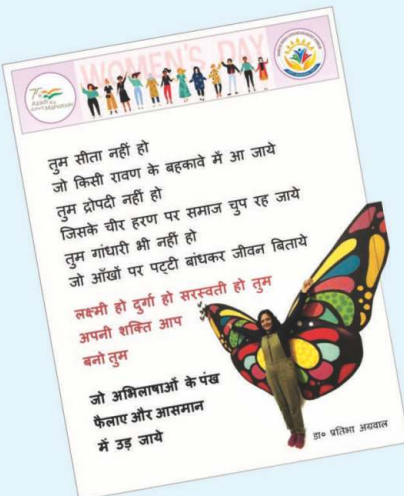 WOMEN'S DAY
75
Azadi Ka
Amrit Mahotsav
तुम सीता नहीं हो
जो किसी रावण के बहकावे में आ जाये
तुम द्रोपदी नहीं हो
जिसके चीर हरण पर समाज चुप रह जाये
तुम गांधारी भी नहीं हो
जो आँखों पर पट्टी बांधकर जीवन बिताये
लक्ष्मी हो दुर्गा हो सरस्वती हो तुम
अपनी शक्ति आप
बनो तुम
जो अभिलाषाओं के पंख
फैलाए और आसमान
में उड़ जाये
डा० प्रतिभा अग्रवाल